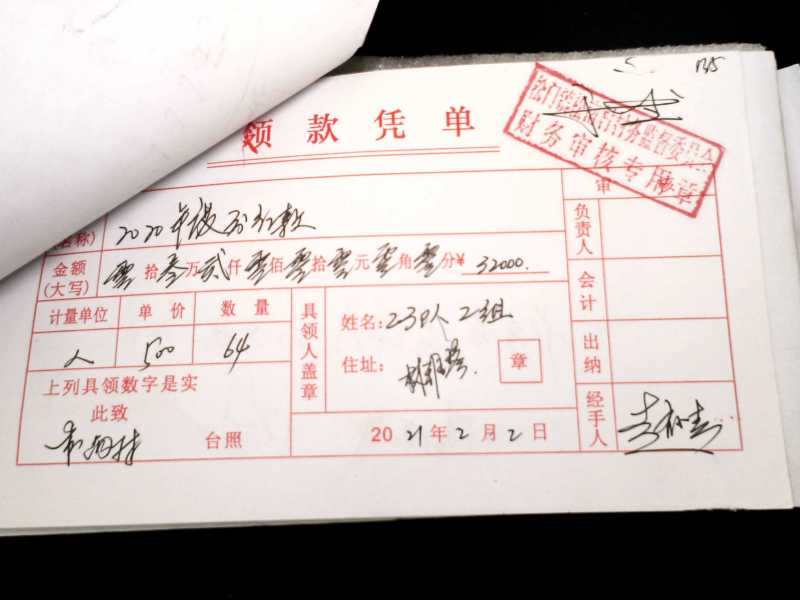 135
领款凭单
财务审核专用章
审
名称)
2020年度分红款
金额(大写) 零拾叁万贰仟零佰零拾零元零角零分¥ 32000.
计量单位 单价 数量
人 500 64
具领人盖章
姓名: 23队2组
住址:
章
上列具领数字是实
此致
台照
2021年2月2日
负责人
会计
出纳
经手人